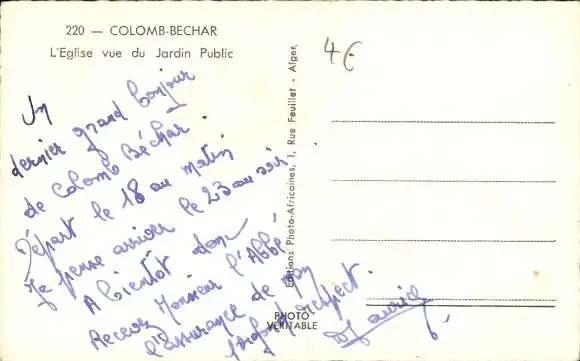 220 — COLOMB-BECHAR
L'Eglise vue du Jardin Public
4€
Un
dernier grand bonjour
de Colomb Béchar.
Départ le 18 au matin
Je pense arriver le 23 au soir
A bientôt donc
Recevez Monsieur l'Abbé
l'assurance de mon
profond respect.
Editions Photo-Africaines, 1, Rue Feuillet - Alger,
PHOTO
VERITABLE